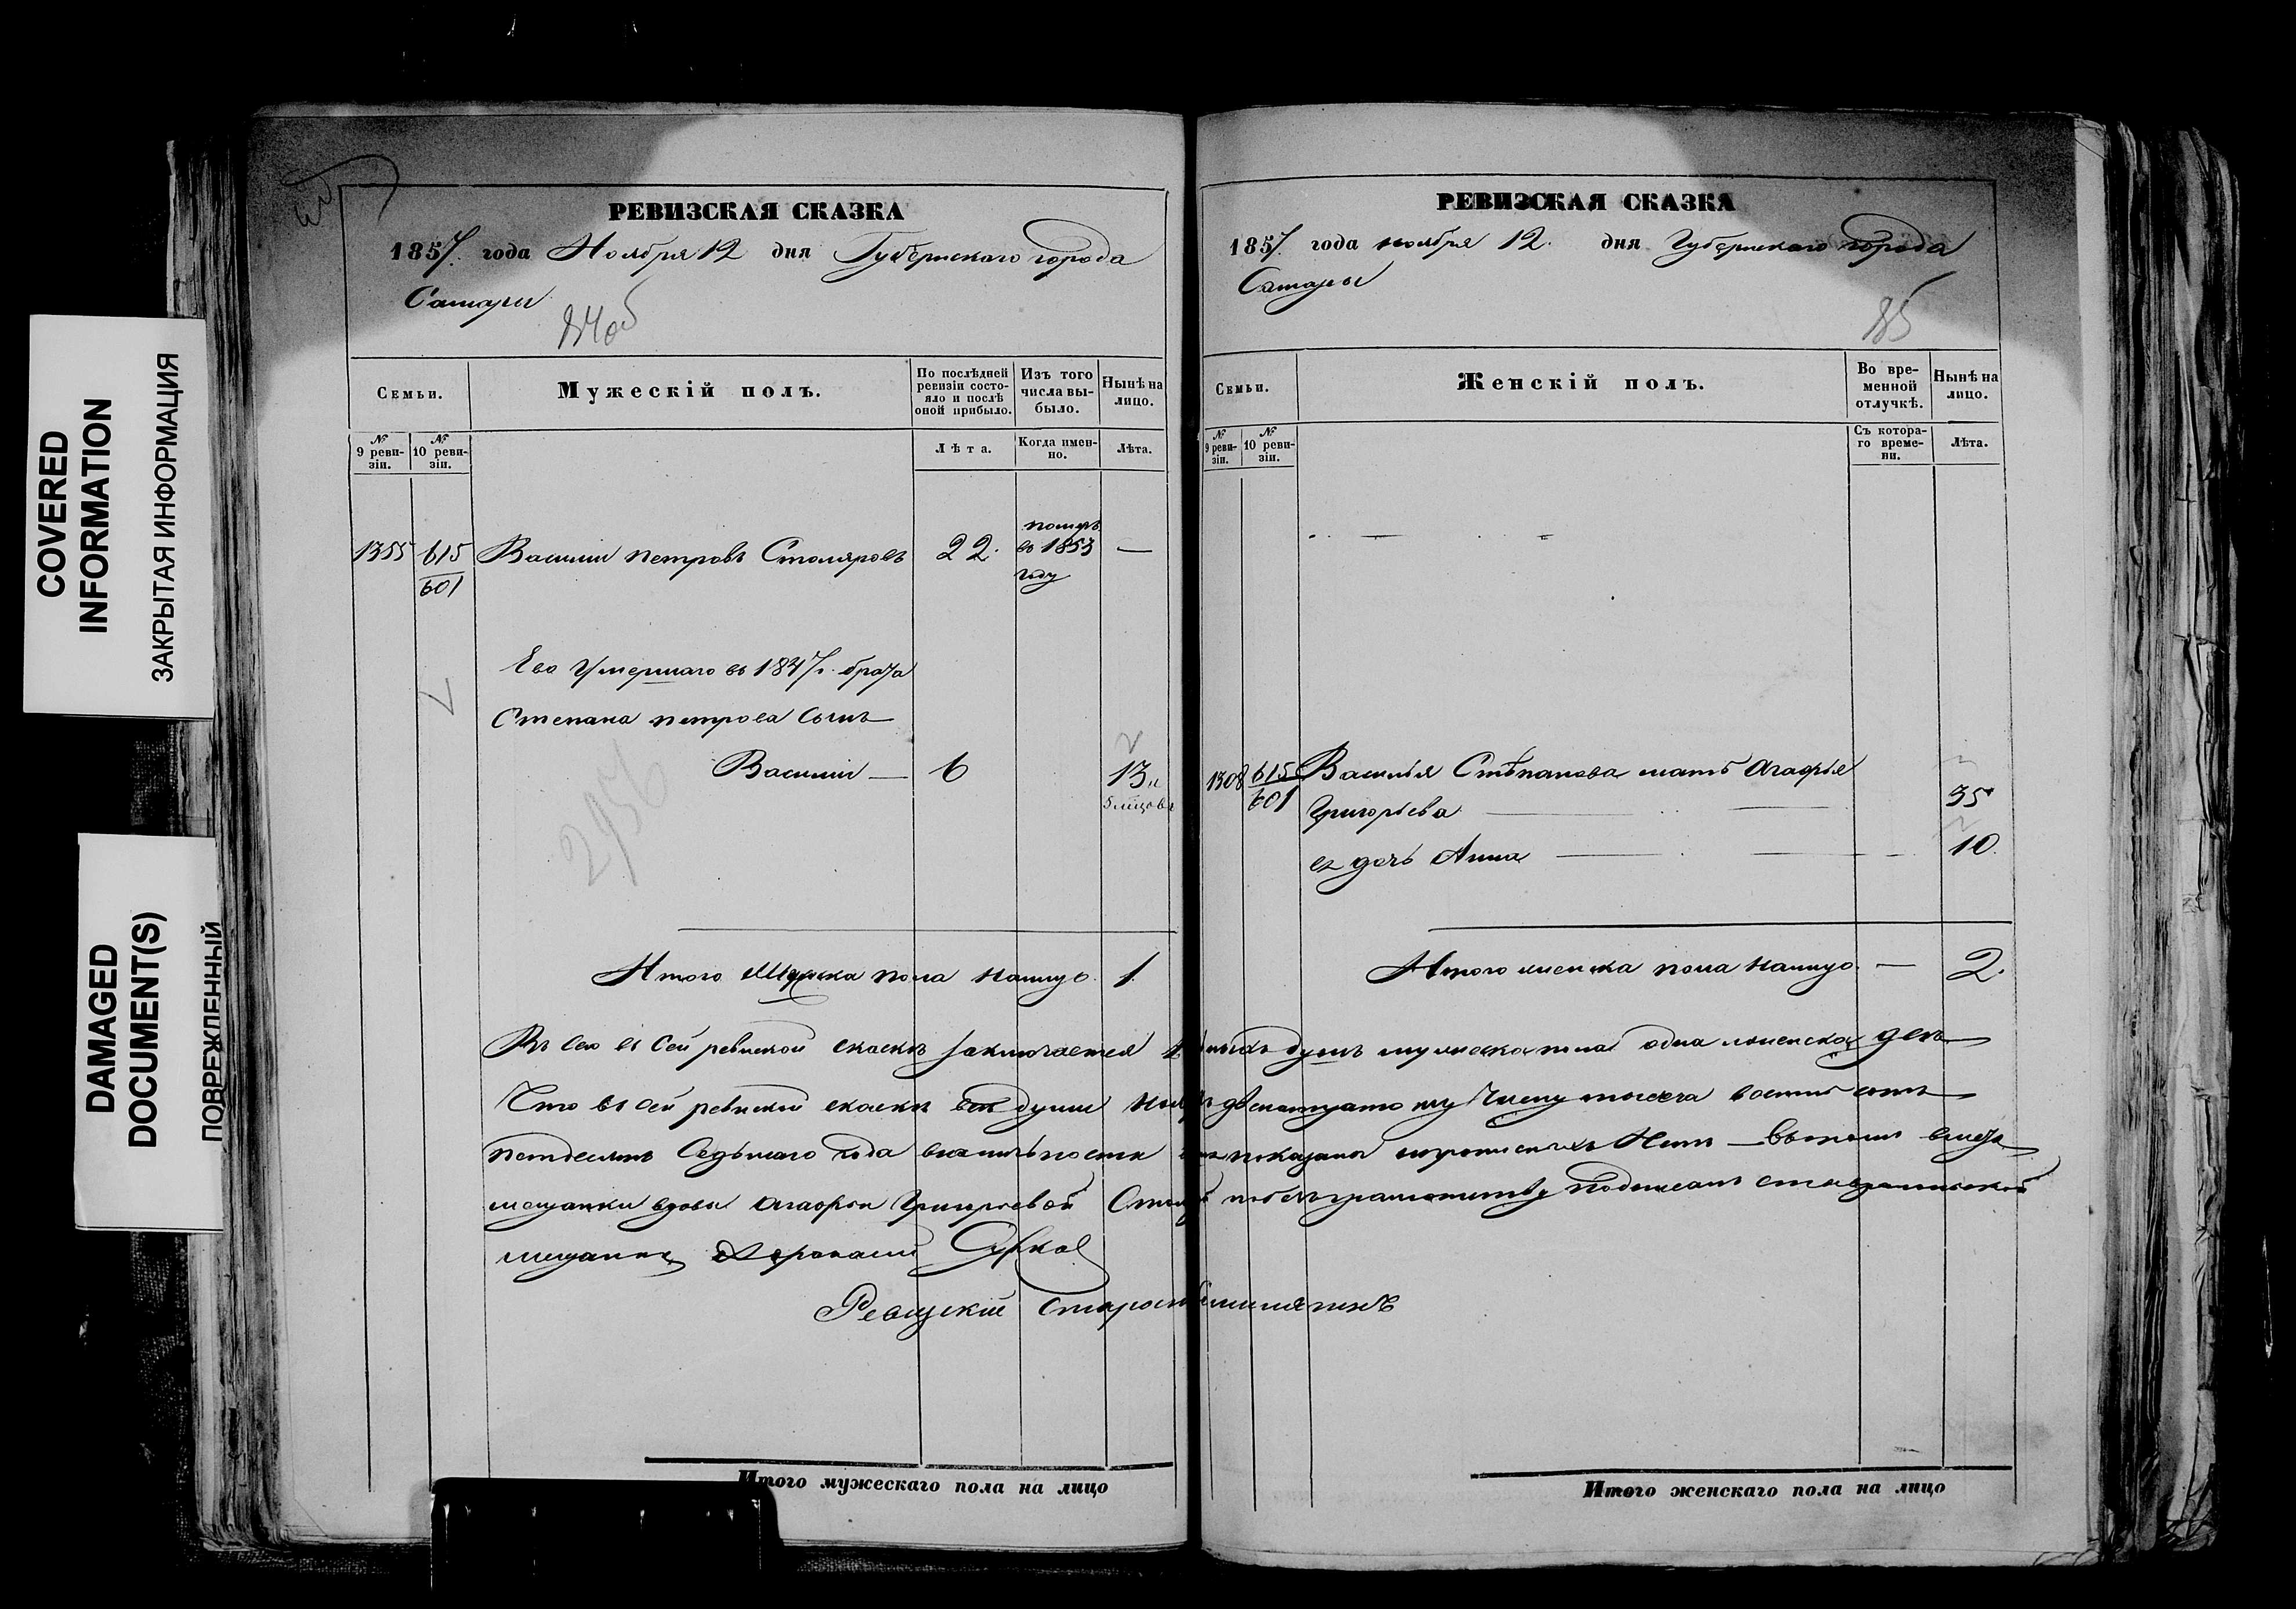 COVERED
INFORMATION
ЗАКРЫТАЯ ИНФОРМАЦИЯ
DAMAGED
DOCUMENT(S)
ПОВРЕЖДЕННЫЙ
РЕВИЗСКАЯ СКАЗКА
1857. года Ноября 12 дня Губернскаго города
Самары
84об
Семьи.
Мужескій полъ.
По послѣдней ревизіи состояло и послѣ оной прибыло.
Изъ того числа выбыло.
Нынѣ на лицо.
№ 9 ревизіи.
№ 10 ревизіи.
Лѣта.
Когда именно.
Лѣта.
1355 615/601 Василии петровъ Столяровъ 22. померъ въ 1853 году —
Ево Умершаго въ 1847 г. брата
Степана петрова Сынъ
Василии — 6 13
2956
Итого Мужска пола налицо. 1
РЕВИЗСКАЯ СКАЗКА
1857. года ноября 12. дня Губернскаго города
Самары
85
Семьи.
Женскій полъ.
Во временной отлучкѣ.
Нынѣ на лицо.
№ 9 ревизіи.
№ 10 ревизіи.
Съ котораго времени.
Лѣта.
1308 615/601 Василья Стѣпанова мать Агафья
Григорьева 35
ея дочь Анна 10.
Итого женска пола налицо. — 2.
сей ревиской скаскѣ заключается душъ мужеска пола одна женска двѣ
Что въ сей ревиской скаскѣ все души двенатцатому Числу тысеча восимь сотъ
петдесятъ Седьмаго года показаны прописныхъ Нетъ —
мещанки вдовы Агафьи Григорьевой
мещанинъ
Ревизскіи
Итого мужескаго пола на лицо
Итого женскаго пола на лицо